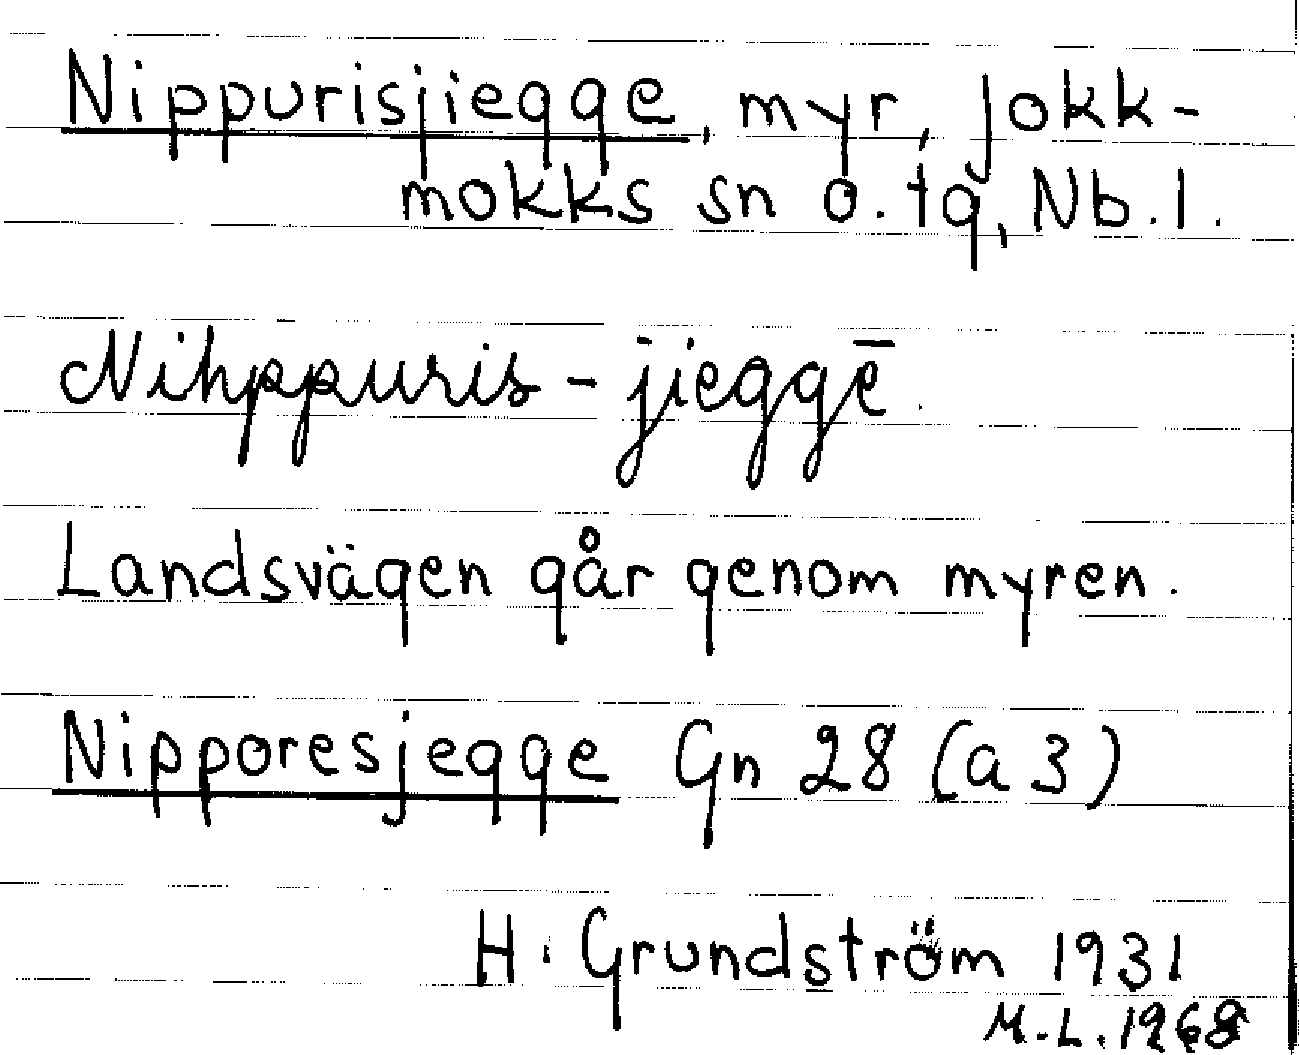 Nippurisjiegge, myr, Jokk-
mokks sn o. tg, Nb. l.
Nihppuris-jieggē.
Landsvägen går genom myren.
Nipporesjegge Gn 28 (a 3)
H. Grundström 1931
M.L. 1968